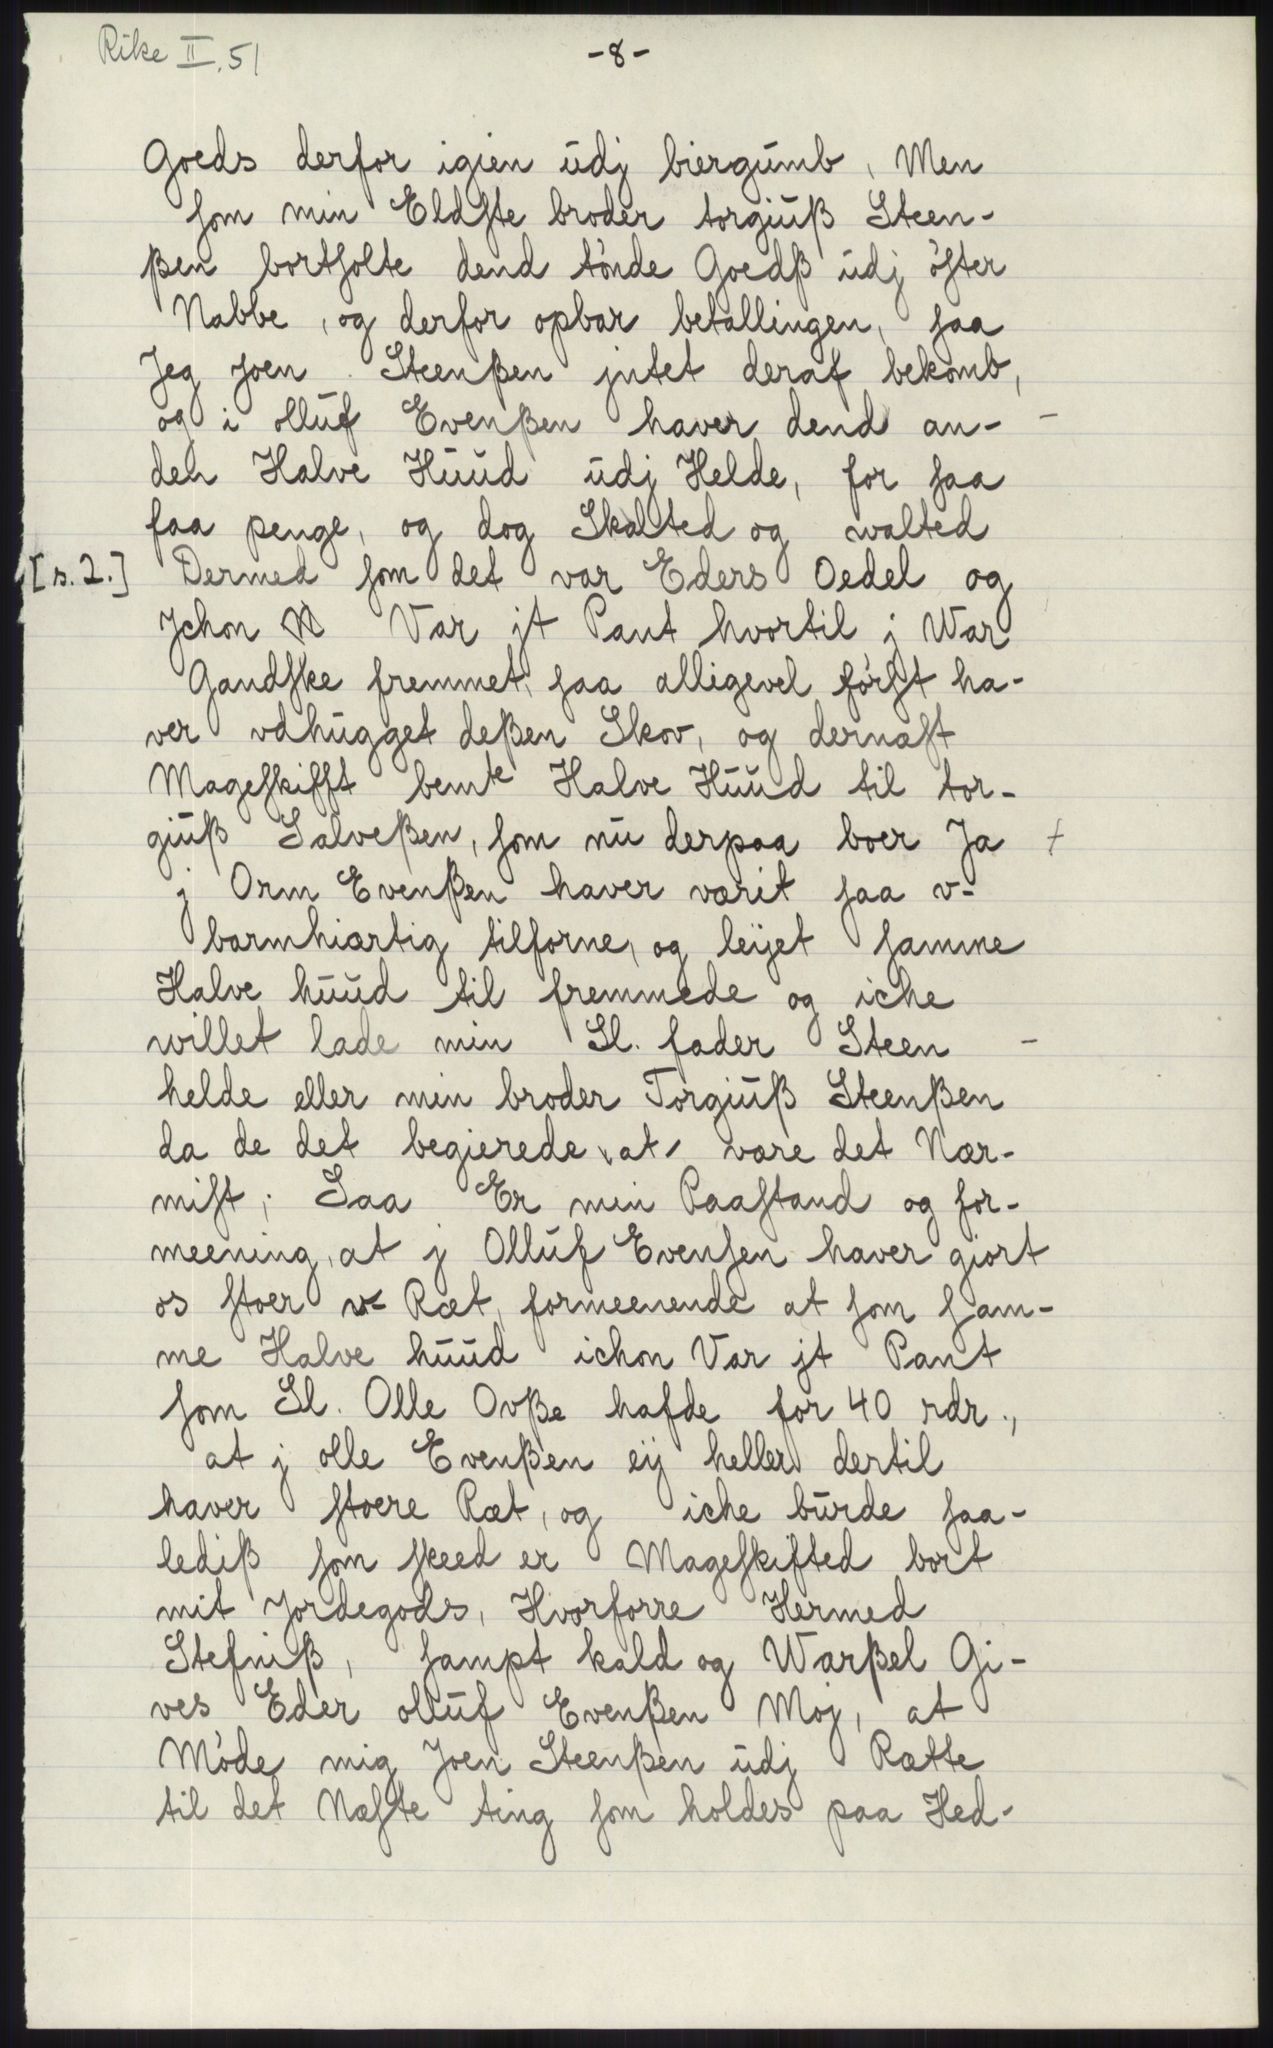 Rike II, 51
-8-
Goeds derfor igien udj biergumb, Men
som min Eldste broder torgiuß Steen-
ßen bortsolte dend tönde Goedß udj öster
Nabbe, og derfor opbar betallingen, saa
Jeg Joen Steenßen jntet deraf bekomb,
og i olluf Evenßen haver dend an-
den Halve Huud udj Helde, for saa
faa penge, og dog Skalted og walted
[s. 2.] Dermed som det var Eders Oedel og
Jchon Var jt Pant hvortil j War
Gandske fremmet, saa alligevel först ha-
ver vdhugget deßen Skov, og dernæst
Mageskifft bemte Halve Huud til tor-
giuß Salveßen, som nu derpaa boer Ja
j Orm Evenßen haverværit saa v-
barmhiærtig tilforne, og leijet samme
Halve huud til fremmede og iche
willet lade min Sl. fader Steen
helde eller min broder Torgiuß Steenßen
da de det begierede at være det Nær-
mist; Saa Er min Paastand og for-
meening, at j Olluf Evensen haver giort
os stoer v- Ræt, formeenende at som sam-
me Halve huud ichon Var jt Pant
som Sl. Olle Ovße hafde for 40 rdr.,
at j olle Evenßen eij heller dertil
haver stoere Ræt, og iche burde saa-
lediß som skeed er Mageskifted bort
mit Jordegods, Hvorforre Hermed
Stefniß, sampt kald og Warßel Gi-
ves Eder olluf Evenßen Moj, at
Möde mig Joen Steenßen udj Rætte
til det Næste ting som holdes paa Hed-